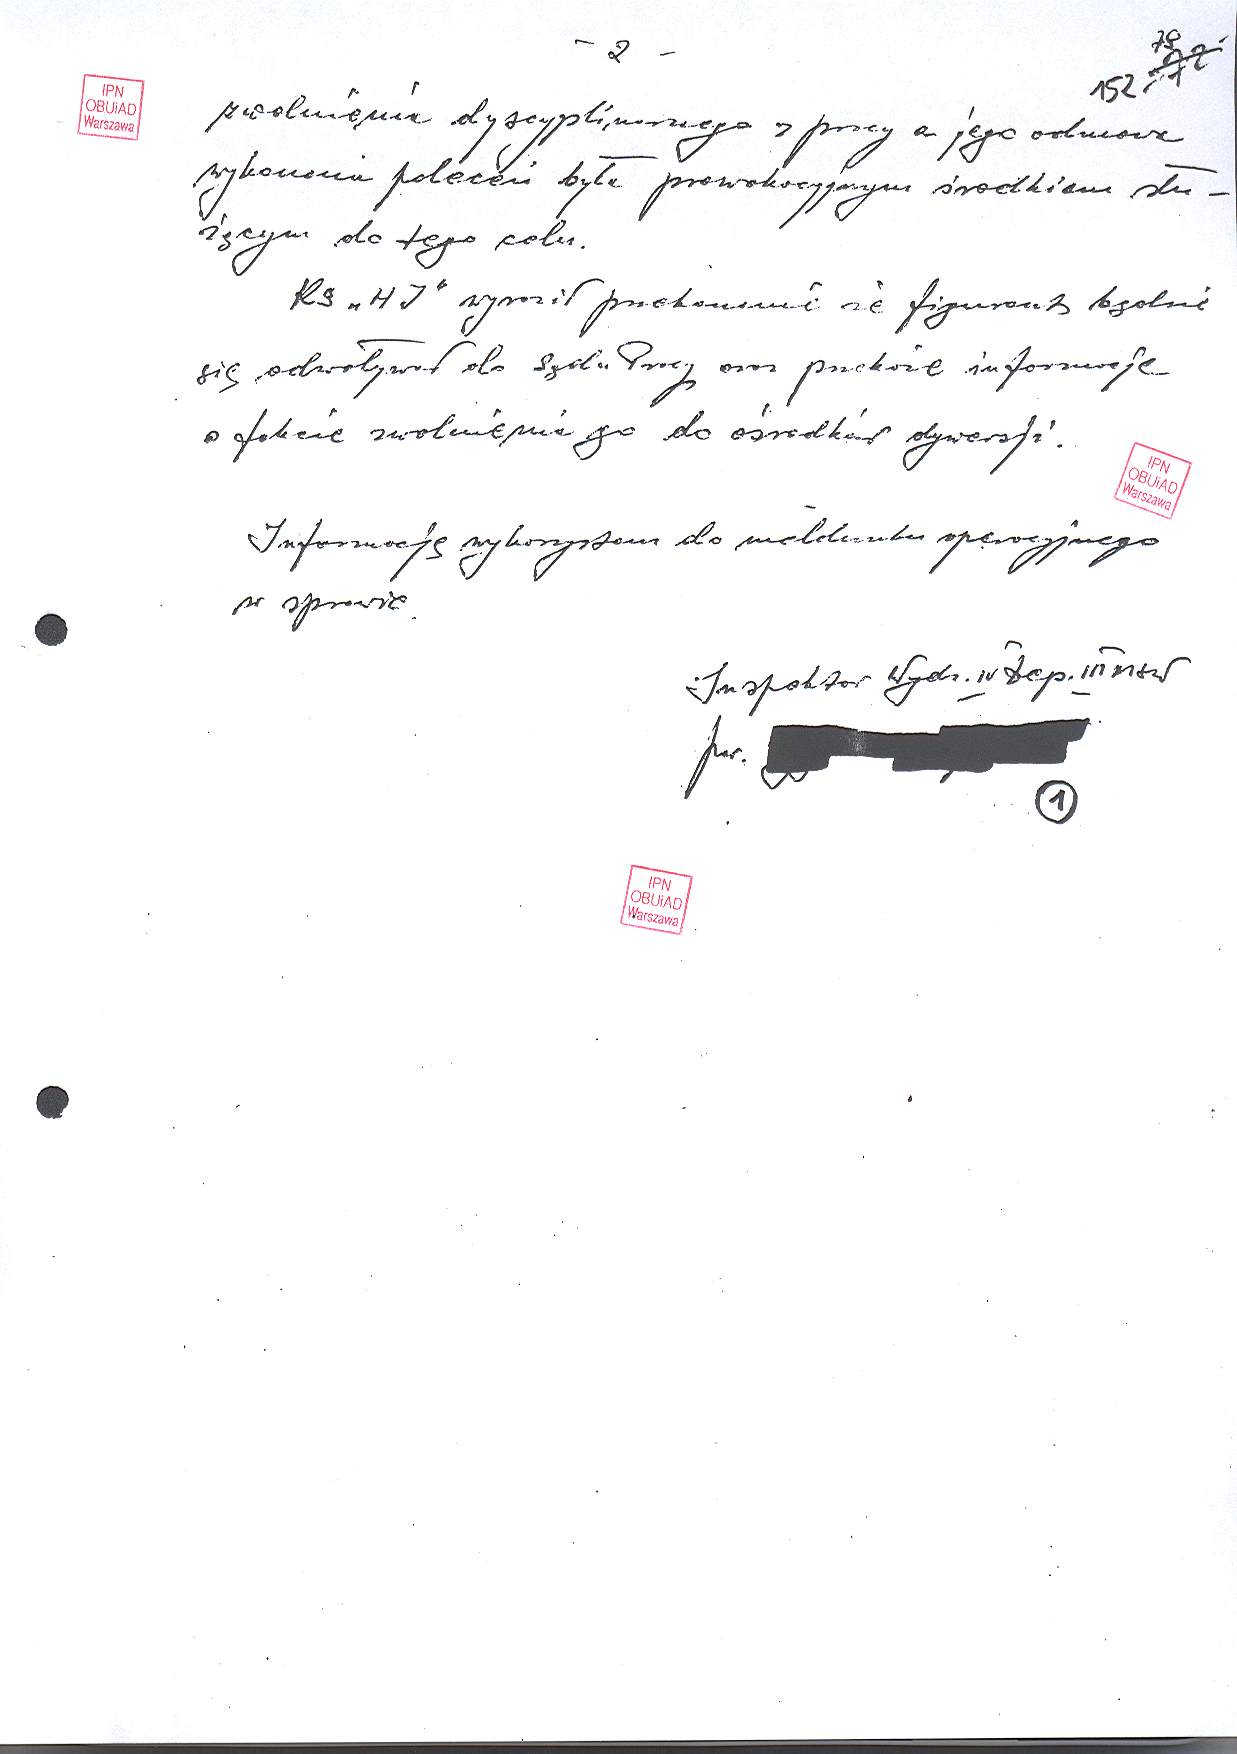 - 2 -
79
152
IPN
OBUiAD
Warszawa
zwolnienia dyscyplinarnego z pracy a jego odmowa
wykonania poleceń była prowokacyjnym środkiem słu-
żącym do tego celu.
KS „HJ" wyraził przekonanie że figurant będzie
się odwoływał do Sądu Pracy oraz przekaże informację
o fakcie zwolnienia go do ośrodków dywersji.
IPN
OBUiAD
Warszawa
Informację wykorzystam do meldunku operacyjnego
w sprawie.
Inspektor Wydz. IV Dep. III MSW
por.
1
IPN
OBUiAD
Warszawa